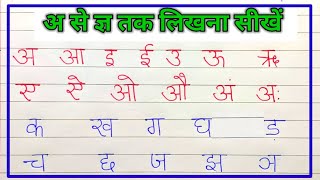 अ से ज्ञ तक लिखना सीखें
अ आ इ ई उ ऊ ऋ
ए ऐ ओ औ अं अः
क ख ग घ ङ
च छ ज झ ञ